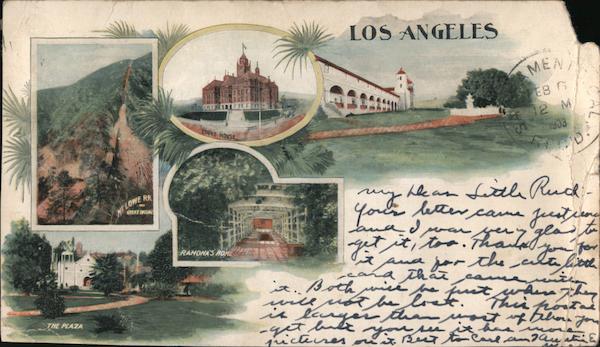 LOS ANGELES
COURT HOUSE
MT. LOWE RR.
AND
GREAT INCLINE
RAMONA'S HOME
THE PLAZA
MENT CAL.
FEB
12 M
1903
My dear Little Ruth-
Your letter came just now
and I was very glad to
get it, too. Thank you for
it and for the cute little
card that came with
it. Both will be put where they
will not be lost. This postal
is larger than most of those you
get but you see it has more
pictures on it. Best to Carl and Auntie